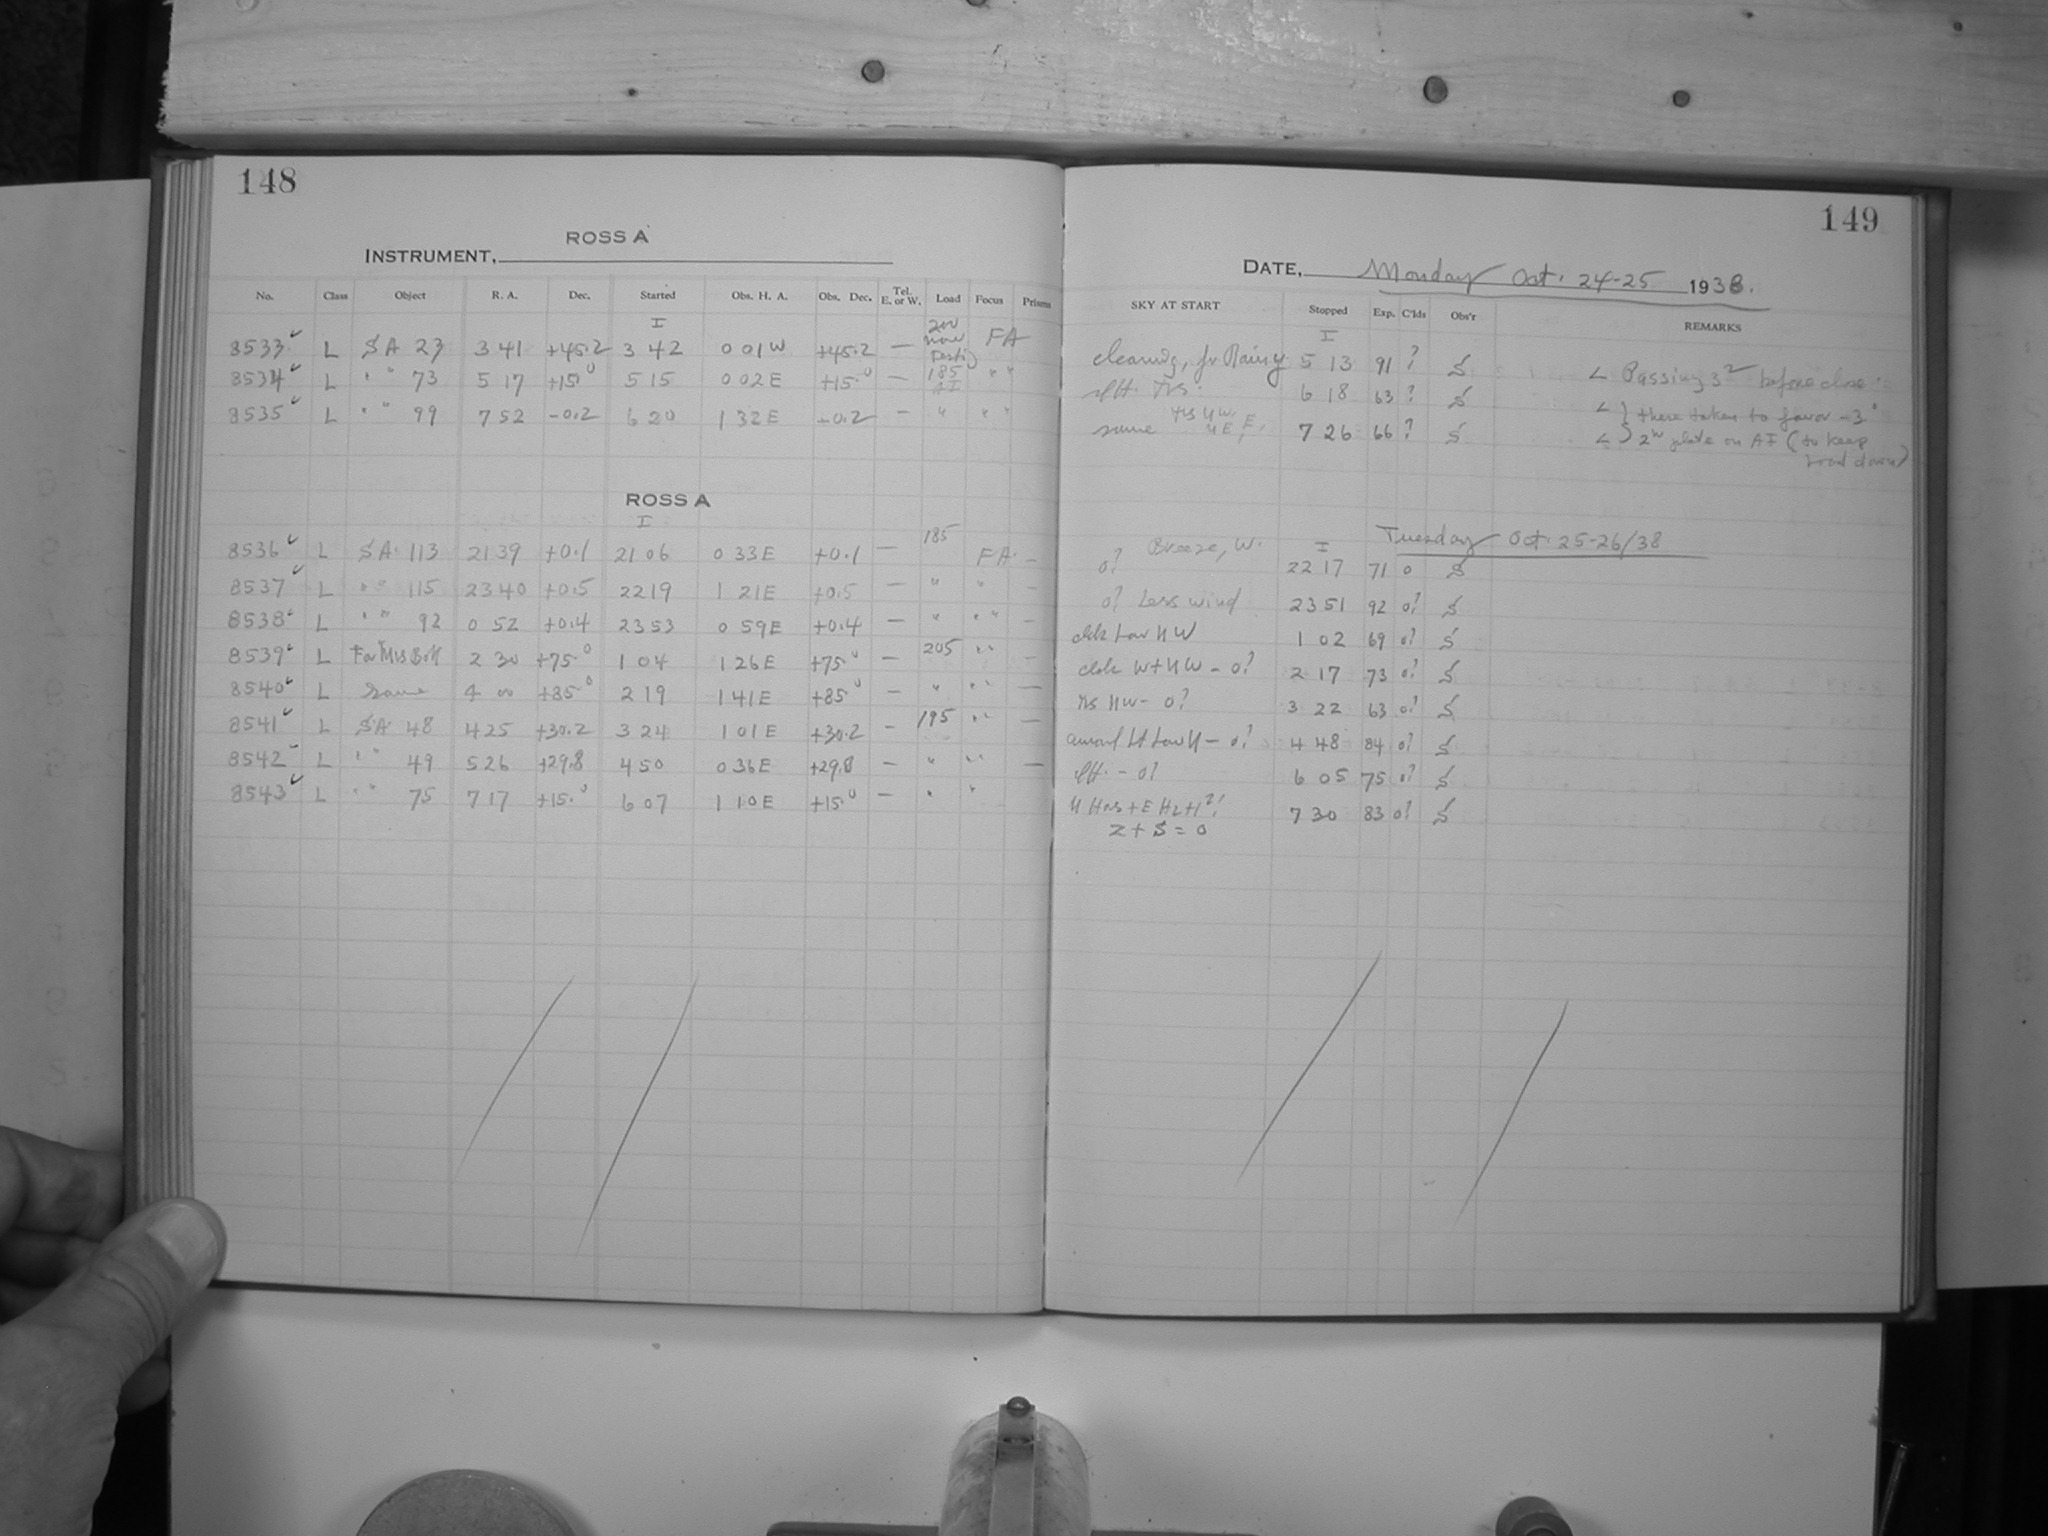 148
ROSS A
INSTRUMENT,
No. Class Object R. A. Dec. Started Obs. H. A. Obs. Dec. Tel. E. or W. Load Focus Prisms
I
8533 L SA 23 3 41 +45.2 3 42 0 01 W +45.2 — FA
8534 L " " 73 5 17 +15.0 5 15 0 02 E +15.0 — 185 " "
8535 L " " 99 7 52 -0.2 6 20 1 32 E -0.2 — " " "
ROSS A
I
8536 L SA 113 21 39 +0.1 21 06 0 33 E +0.1 — 185 FA —
8537 L " " 115 23 40 +0.5 22 19 1 21 E +0.5 — " " —
8538 L " " 92 0 52 +0.4 23 53 0 59 E +0.4 — " " " —
8539 L For Mrs Bok 2 30 +75.0 1 04 1 26 E +75.0 — 205 " " —
8540 L Same 4 00 +85.0 2 19 1 41 E +85.0 — " " " —
8541 L SA 48 4 25 +30.2 3 24 1 01 E +30.2 — 195 " " —
8542 L " " 49 5 26 +29.8 4 50 0 36 E +29.8 — " " " —
8543 L " " 75 7 17 +15.0 6 07 1 10 E +15.0 — " "
149
DATE, Monday Oct. 24-25 1938.
SKY AT START Stopped Exp. C'lds Obs'r REMARKS
I
5 13 91 ? S Passing before close
6 18 63 ? S } these taken to favor -3
same 7 26 66 ? S } 2nd plate on AI (to keep
load down)
Tuesday Oct. 25-26/38
Breeze, W. I
0? 22 17 71 0 S
0? Less wind 23 51 92 0? S
Low NW 1 02 69 0? S
W + NW - 0? 2 17 73 0? S
NW - 0? 3 22 63 0? S
Low N - 0? 4 48 84 0? S
- 0? 6 05 75 0? S
7 30 83 0? S
Z + S = 0